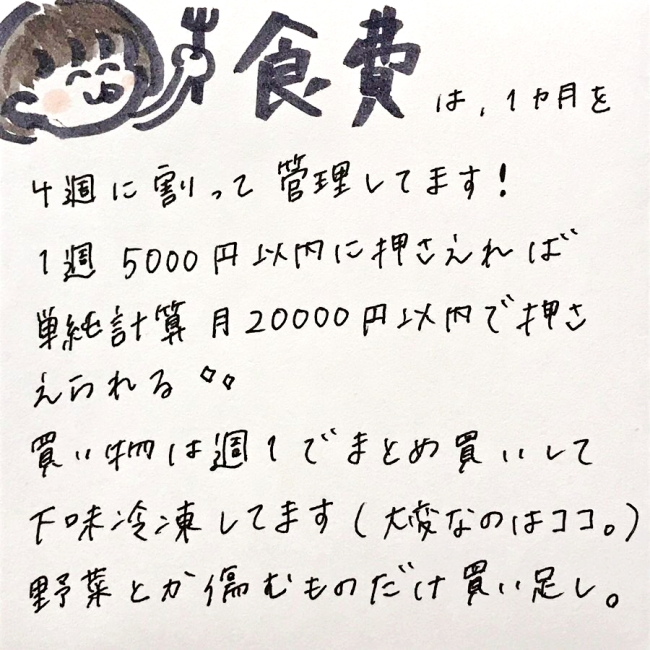 食費は、1ヵ月を
4週に割って管理してます!
1週 5000円以内に押さえれば
単純計算 月20000円以内で押さ
えられる
買い物は週1でまとめ買いして
下味冷凍してます(大変なのはココ。)
野菜とか傷むものだけ買い足し。